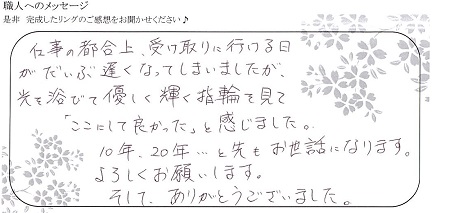 職人へのメッセージ
是非 完成したリングのご感想をお聞かせください♪
仕事の都合上、受け取りに行ける日
がだいぶ遅くなってしまいましたが、
光を浴びて優しく輝く指輪を見て
「ここにして良かった」と感じました。
10年、20年…と先もお世話になります。
よろしくお願いします。
そして、ありがとうございました。